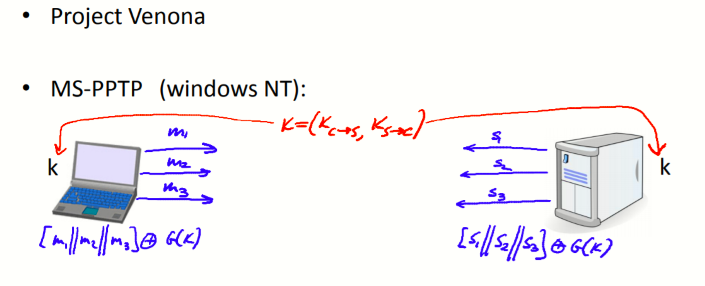 • Project Venona
• MS-PPTP (windows NT):
K=(K_{C→S}, K_{S→C})
k
m₁
m₂
m₃
s₁
s₂
s₃
k
[m₁||m₂||m₃]⊕G(K)
[s₁||s₂||s₃]⊕G(K)